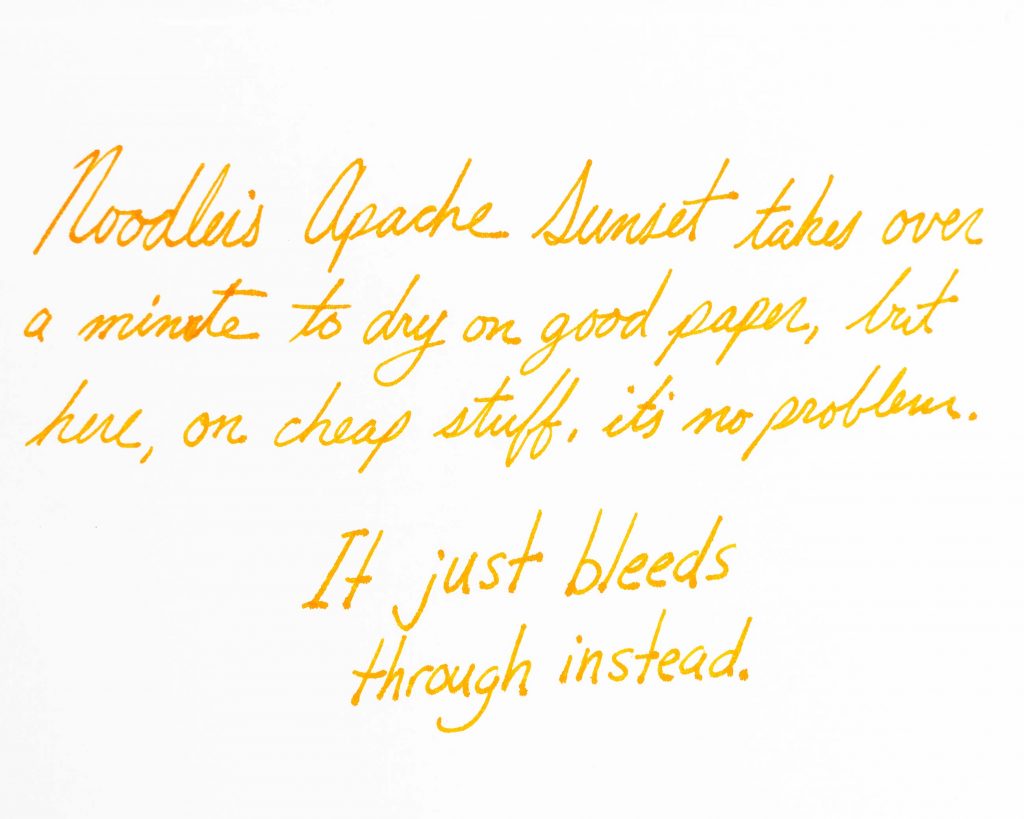 Noodler's Apache Sunset takes over
a minute to dry on good paper, but
here, on cheap stuff, it's no problem.
It just bleeds
through instead.